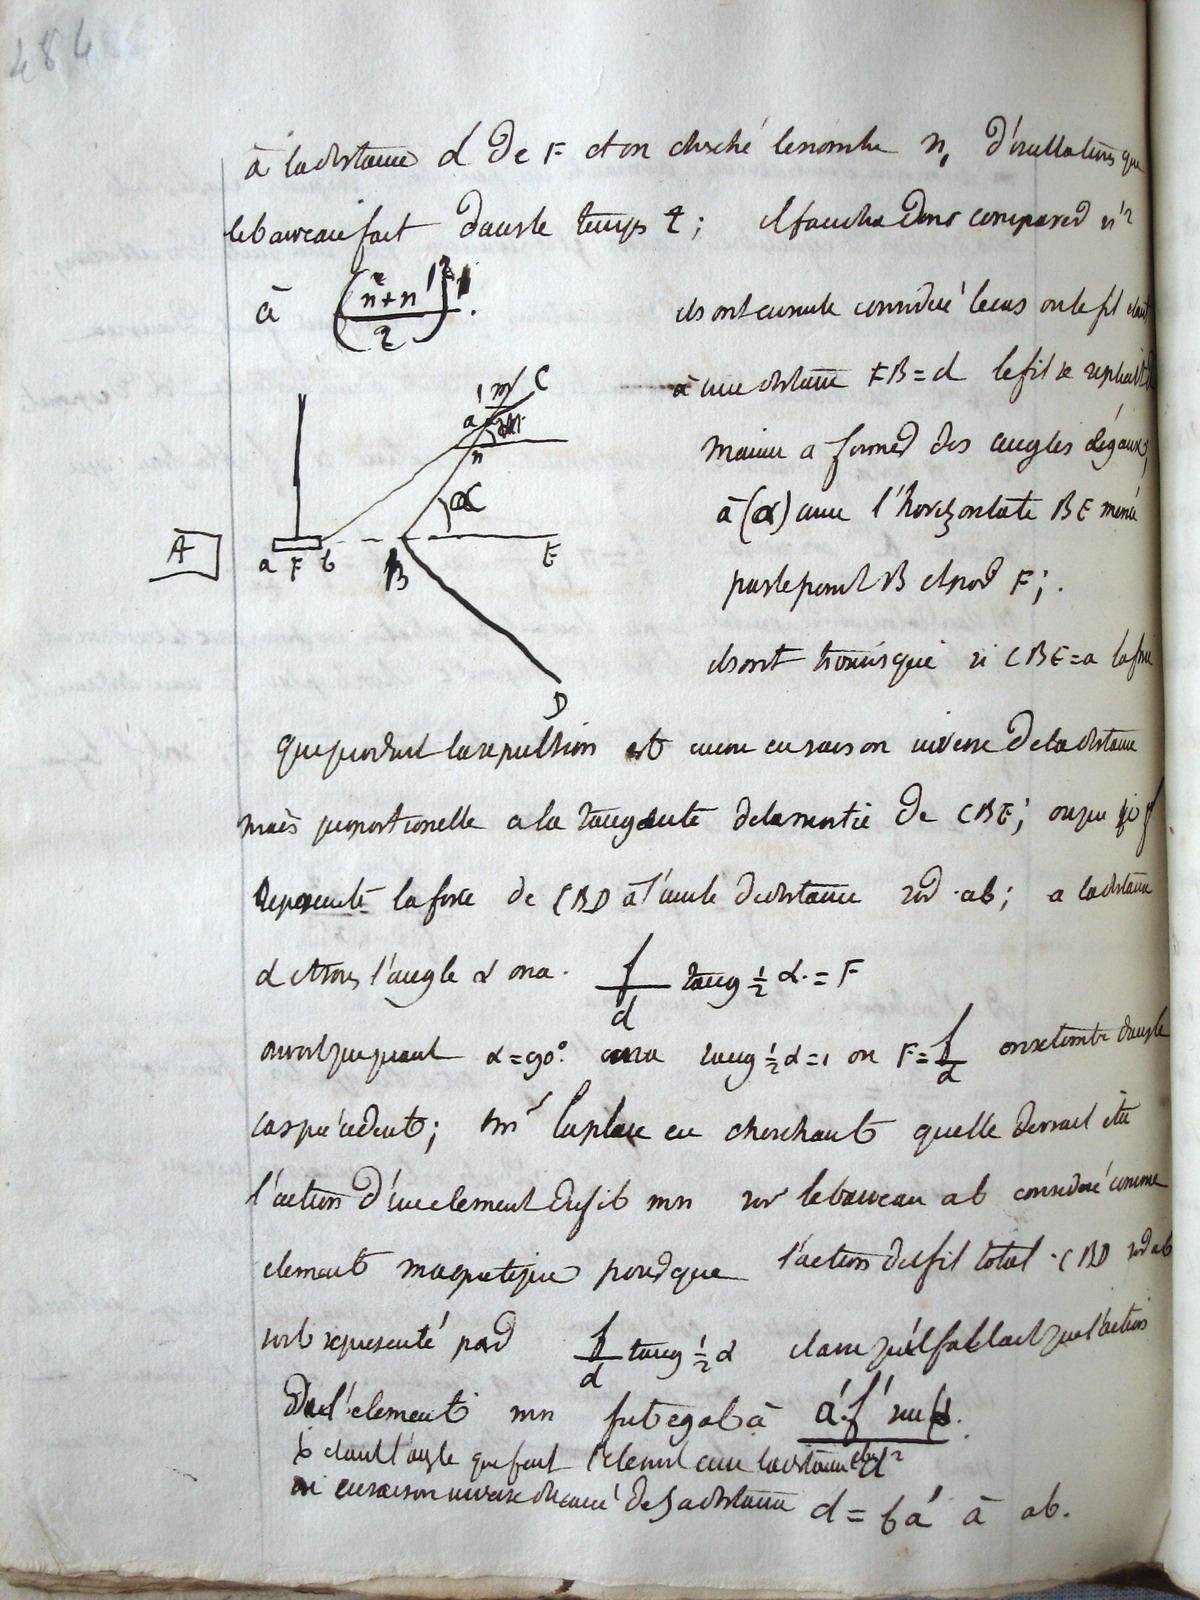 484
à la distance d de F et on cherche le nombre n, d'oscillations que
le barreau fait dans le temps t; il faudra donc comparer n'²
à (n+n'/2)².
ils ont ensuite considéré le cas ou le fil étant
à une distance FB=d le fil se repliait de
maniere a former des angles égaux,
à (α) avec l'horizontale BE menée
par le point B et par F;.
ils ont trouvés que si CBE=a la force
que produit la repulsion est encore en raison inverse de la distance
mais proportionelle a la tangente de la moitié de CBE; ou que si f
represente la force de CBD à l'unité de distance sur ab; a la distance
d et sous l'angle α on a. f/d tang ½ α. = F
on voit que quand α=90°. on a tang ½ α=1 ou F=f/d on retombe dans le
cas précédent; Mr Laplace en cherchant quelle devrait être
l'action d'un element du fil mn sur le barreau ab consideré comme
element magnetique pour que l'action du fil total CBD sur ab
soit representé par f/d tang ½ α a vu qu'il fallait que l'action
de l'element mn fut egal à a'f' sin
étant l'angle que fait l'element avec la distance d²
en raison inverse du carré de la distance d = ba' à ab.
m' C
a' M
n
α
A
a F b B E
D